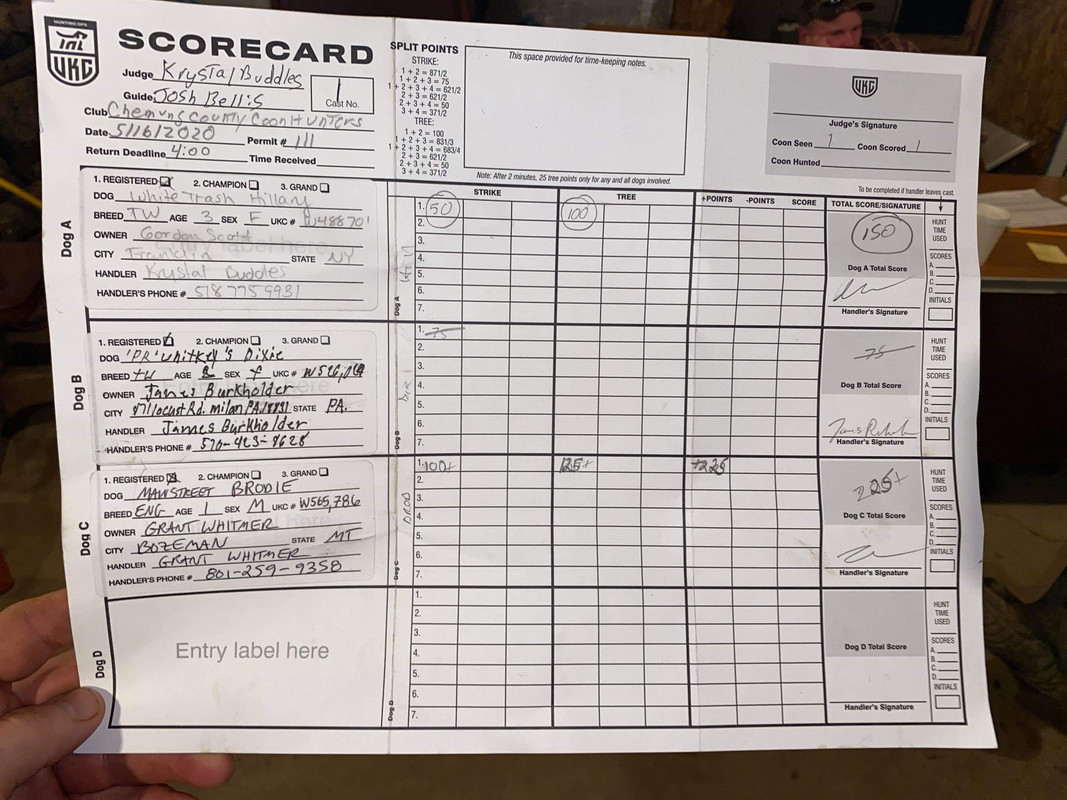 HUNTING OPS
UKC
SCORECARD
Judge Krystal Buddles
Guide Josh Bellis
1
Cast No.
Club Chemung County Coon Hunters
Date 5/16/2020 Permit # 111
Return Deadline 4:00 Time Received
SPLIT POINTS
STRIKE:
1 + 2 = 871/2
1 + 2 + 3 = 75
1 + 2 + 3 + 4 = 621/2
2 + 3 = 621/2
2 + 3 + 4 = 50
3 + 4 = 371/2
TREE:
1 + 2 = 100
1 + 2 + 3 = 831/3
1 + 2 + 3 + 4 = 683/4
2 + 3 = 621/2
2 + 3 + 4 = 50
3 + 4 = 371/2
This space provided for time-keeping notes.
Note: After 2 minutes, 25 tree points only for any and all dogs involved.
UKC
Judge's Signature
Coon Seen 1 Coon Scored 1
Coon Hunted
To be completed if handler leaves cast.
STRIKE TREE +POINTS -POINTS SCORE TOTAL SCORE/SIGNATURE
Dog A
1. REGISTERED 2. CHAMPION 3. GRAND
DOG White Trash Hillary
BREED TW AGE 3 SEX F UKC #
OWNER Gordon Scott
CITY Franklin STATE NY
HANDLER Krystal Buddles
HANDLER'S PHONE # 5187759931
Dog A
1. 50 100
2.
3.
4.
5.
6.
7.
150
Dog A Total Score
Handler's Signature
HUNT
TIME
USED
SCORES
A.
B.
C.
D.
INITIALS
Dog B
1. REGISTERED 2. CHAMPION 3. GRAND
DOG 'PR' Whitkey's Dixie
BREED TW AGE 2 SEX F UKC #
OWNER James Burkholder
CITY Locust Rd. Milan PA. 18831 STATE PA.
HANDLER James Burkholder
HANDLER'S PHONE # 570-423-8628
Dog B
1. 75
2.
3.
4.
5.
6.
7.
75
Dog B Total Score
Handler's Signature
HUNT
TIME
USED
SCORES
A.
B.
C.
D.
INITIALS
Dog C
1. REGISTERED 2. CHAMPION 3. GRAND
DOG MAINSTREET BRODIE
BREED ENG AGE 1 SEX M UKC # W565,786
OWNER GRANT WHITMER
CITY BOZEMAN STATE MT
HANDLER GRANT WHITMER
HANDLER'S PHONE # 801-259-9358
Dog C
1. 100+ 125+ +225
2.
3.
4.
5.
6.
7.
225+
Dog C Total Score
Handler's Signature
HUNT
TIME
USED
SCORES
A.
B.
C.
D.
INITIALS
Dog D
Entry label here
Dog D
1.
2.
3.
4.
5.
6.
7.
Dog D Total Score
Handler's Signature
HUNT
TIME
USED
SCORES
A.
B.
C.
D.
INITIALS